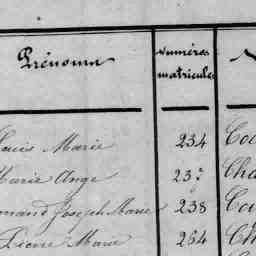 Prénoms numéros
matricules
Louis Marie 234 Co
Marie Ange 237 Cha
Joseph Marie 238 Co
Pierre Marie 264 Ch